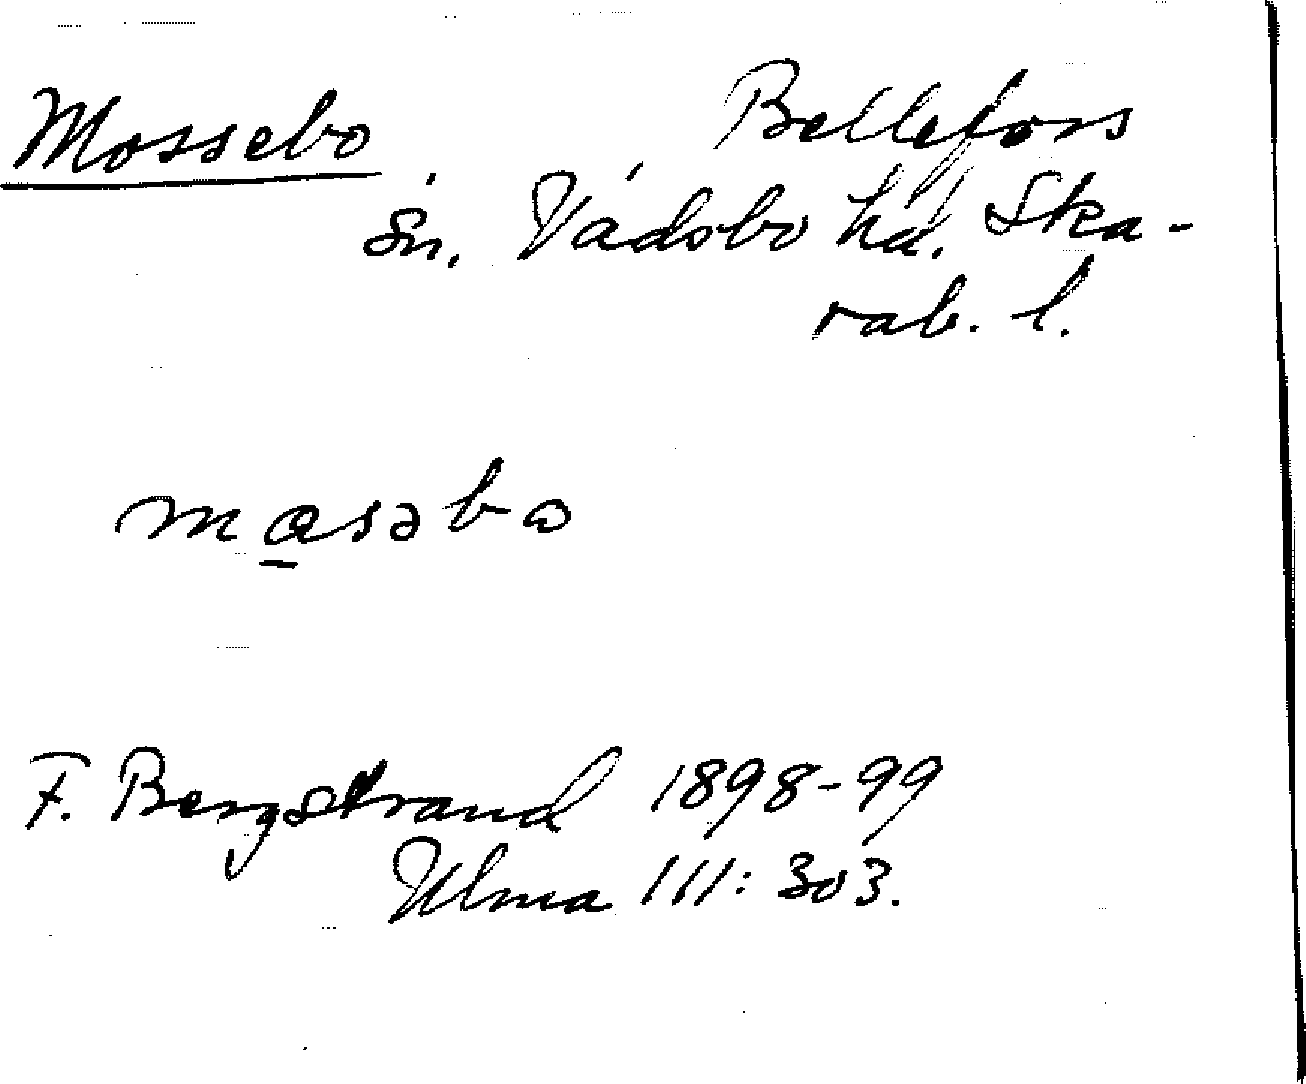 Mossebo
Bellefors
sn. Vadsbo hd. Ska-
rab. l.
F. Bergstrand 1898-99
Ulma 111: 303.